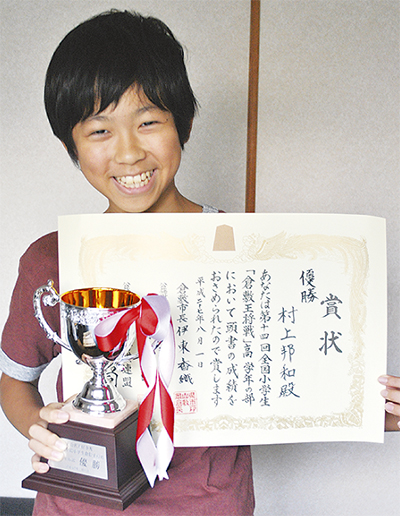 賞状
優勝
村上邦和殿
あなたは第十四回全国小学生
「倉敷王将戦」高学年の部
において頭書の成績を
おさめられたので賞します
平成二十七年八月一日
倉敷市長伊東香織
連盟
優勝